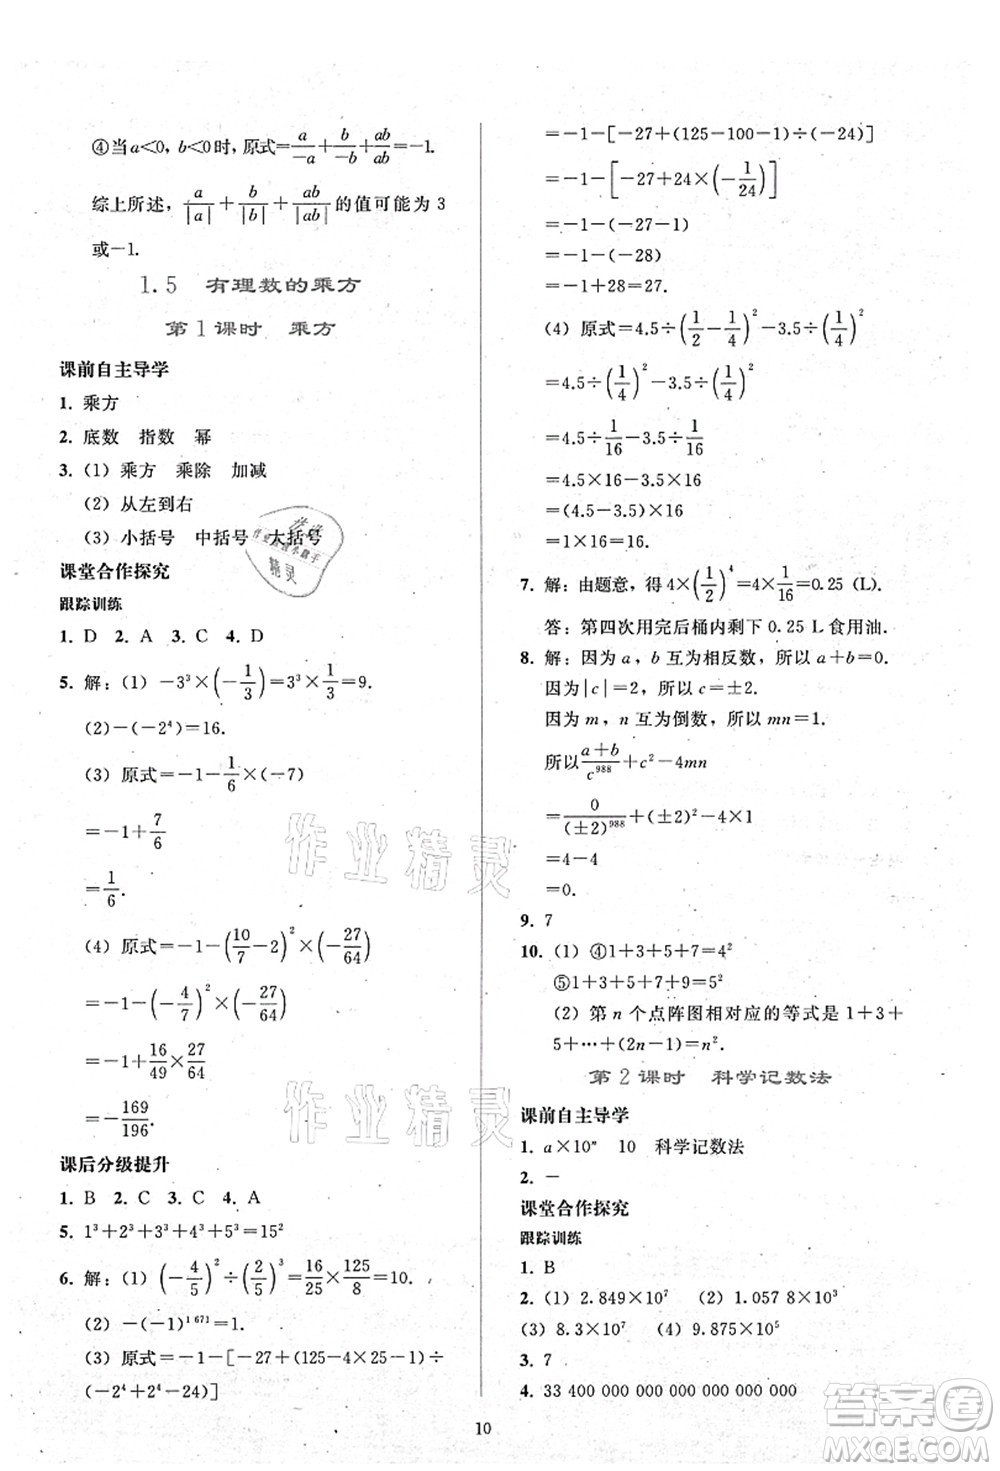 ④当a<0, b<0时, 原式=a/(-a)+b/(-b)+ab/ab=-1.
综上所述, a/|a|+b/|b|+ab/|ab|的值可能为 3
或-1.
1.5 有理数的乘方
第1课时 乘方
课前自主导学
1. 乘方
2. 底数 指数 幂
3. (1) 乘方 乘除 加减
(2) 从左到右
(3) 小括号 中括号 大括号
课堂合作探究
跟踪训练
1. D 2. A 3. C 4. D
5. 解: (1) -3³×(-1/3)=3³×1/3=9.
(2)-(-2⁴)=16.
(3) 原式=-1-1/6×(-7)
=-1+7/6
=1/6.
(4) 原式=-1-(10/7-2)²×(-27/64)
=-1-(-4/7)²×(-27/64)
=-1+16/49×27/64
=-169/196.
课后分级提升
1. B 2. C 3. C 4. A
5. 1³+2³+3³+4³+5³=15²
6. 解: (1) (-4/5)²÷(2/5)³=16/25×125/8=10.
(2) -(-1)¹⁶⁷¹=1.
(3) 原式=-1-[-27+(125-4×25-1)÷
(-2⁴+2⁴-24)]
=-1-[-27+(125-100-1)÷(-24)]
=-1-[-27+24×(-1/24)]
=-1-(-27-1)
=-1-(-28)
=-1+28=27.
(4) 原式=4.5÷(1/2-1/4)²-3.5÷(1/4)²
=4.5÷(1/4)²-3.5÷(1/4)²
=4.5÷1/16-3.5÷1/16
=4.5×16-3.5×16
=(4.5-3.5)×16
=1×16=16.
7. 解: 由题意, 得 4×(1/2)⁴=4×1/16=0.25 (L).
答: 第四次用完后桶内剩下 0.25 L 食用油.
8. 解: 因为 a, b 互为相反数, 所以 a+b=0.
因为|c|=2, 所以 c=±2.
因为 m, n 互为倒数, 所以 mn=1.
所以(a+b)/c⁹⁸⁸+c²-4mn
=0/(±2)⁹⁸⁸+(±2)²-4×1
=4-4
=0.
9. 7
10. (1) ④1+3+5+7=4²
⑤1+3+5+7+9=5²
(2) 第 n 个点阵图相对应的等式是 1+3+
5+…+(2n-1)=n².
第2课时 科学记数法
课前自主导学
1. a×10ⁿ 10 科学记数法
2. -
课堂合作探究
跟踪训练
1. B
2. (1) 2.849×10⁷ (2) 1.057 8×10⁶
(3) 8.3×10⁷ (4) 9.875×10⁵
3. 7
4. 33 400 000 000 000 000 000
10
作业精灵
作业精灵
答案圈
MXQE.COM